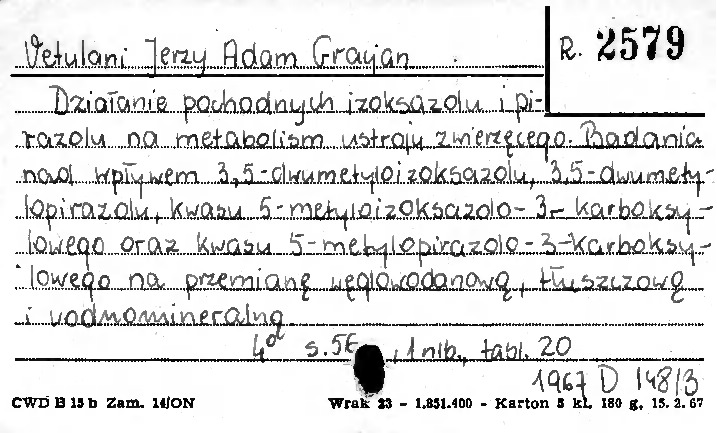 Vetulani Jerzy Adam Gracjan
R. 2579
Działanie pochodnych izoksazolu i pi-
razolu na metabolism ustroju zwierzęcego. Badania
nad wpływem 3,5-dwumetyloizoksazolu, 3,5-dwumety-
lopirazolu, kwasu 5-metyloizoksazolo-3-karboksy-
lowego oraz kwasu 5-metylopirazolo-3-karboksy-
lowego na przemianę węglowodanową, tłuszczową
i wodnomineralną
4° s. , 1 nlb., tabl. 20
1967 D 148/3
CWD B 15 b Zam. 14/ON Wrak 23 - 1,851.400 - Karton 5 kl. 180 g. 15. 2. 67